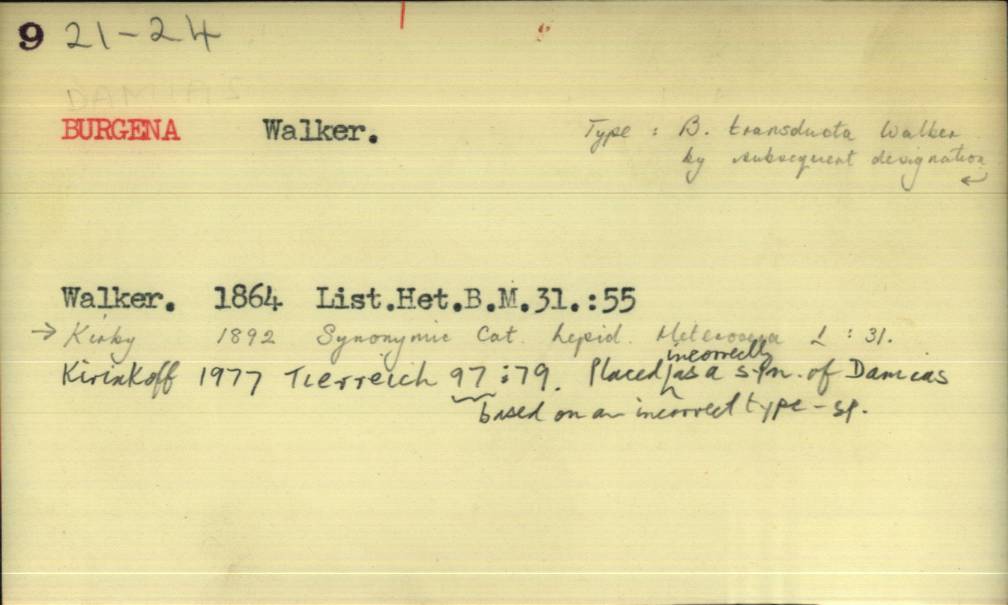 9 21-24
DAMIAS
BURGENA Walker. Type : B. transducta Walker
by subsequent designation
←
Walker. 1864 List.Het.B.M.31.:55
→ Kirby 1892 Synonymic Cat. Lepid. Heterocera 1 : 31.
Kiriakoff 1977 Tierreich 97:79. Placed incorrectly as a syn. of Damias
based on an incorrect type-sp.